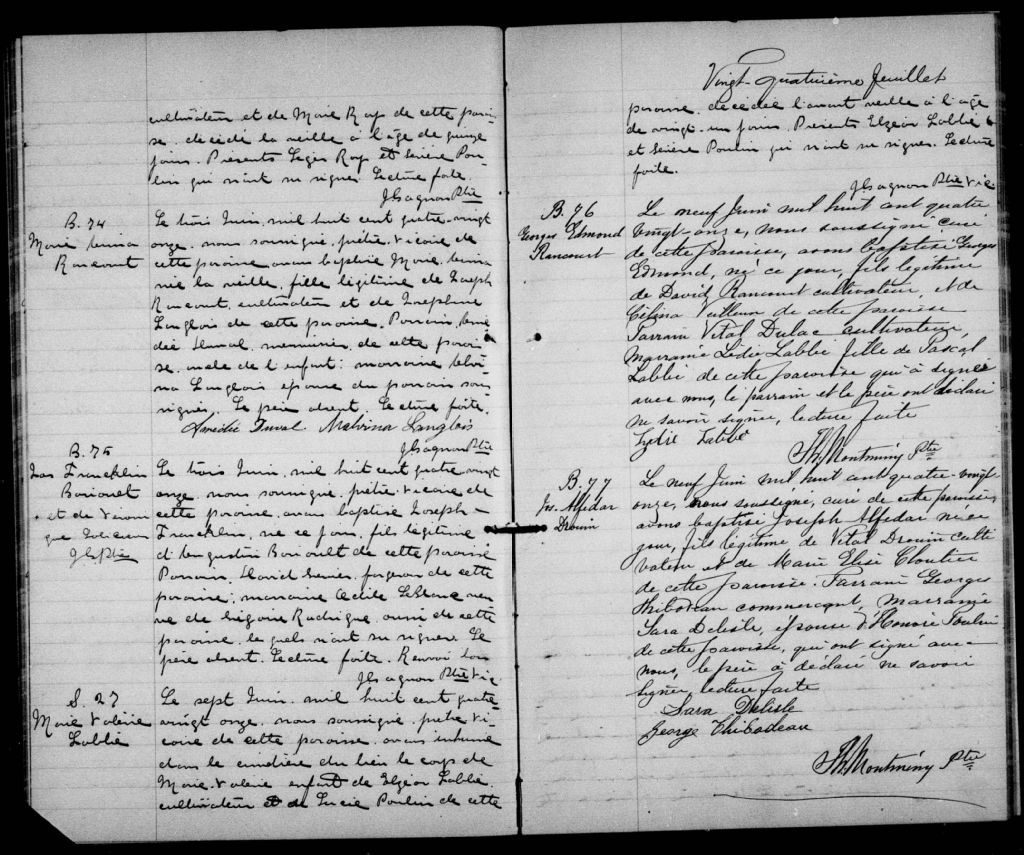 cultivateur et de Marie Roy de cette parois-
se, décédé la veille à l'âge de quinze
jours. Présents Léger Roy et Sévère Pou-
lin qui n'ont su signer. Lecture faite.
J. Gagnon Ptre
B. 74
Marie
Rancourt
Le trois Juin, mil huit cent quatre-vingt
onze, nous soussigné, prêtre-vicaire de
cette paroisse avons baptisé Marie
née la veille, fille légitime de Joseph
Rancourt, cultivateur et de Josephine
Langlois de cette paroisse. Parrain, Amé-
dée Duval, menuisier, de cette parois-
se, oncle de l'enfant; marraine Melvi-
na Langlois épouse du parrain sous-
signés. Le père absent. Lecture faite.
Amédée Duval Melvina Langlois
J. Gagnon Ptre
B. 75
Jos Francklin
Le trois Juin, mil huit cent quatre vingt
onze, nous soussigné, prêtre-vicaire de
cette paroisse, avons baptisé Joseph-
Francklin, né ce jour, fils légitime
d'Augustin de cette paroisse
Parrain, David forgeron de cette
paroisse; marraine Cécile Leblanc veu-
ve de Grégoire Rodrigue, aussi de cette
paroisse, lesquels n'ont su signer. Le
père absent. Lecture faite. Renvoi bon
J. Gagnon Ptre Vic
S. 27
Marie Valérie
Labbé
Le sept Juin, mil huit cent quatre
vingt onze, nous soussigné, prêtre vi-
caire de cette paroisse, avons inhumé
dans le cimetière du lieu le corps de
Marie-Valérie enfant de Elzéar Labbé,
cultivateur et de Lucie Poulin de cette
Vingt-Quatrième feuillet
paroisse décédée l'avant veille à l'âge
de vingt-un jours. Présents Elzéar Labbé
et Sévère Poulin qui n'ont su signer. Lecture
faite.
J. Gagnon Ptre Vic
B. 76
Georges Edmond
Rancourt
Le neuf Juin mil huit cent quatre
vingt-onze, nous soussigné curé
de cette paroisse, avons baptisé Georges
Edmond, né ce jour, fils légitime
de David Rancourt cultivateur, et de
Célina Veilleux de cette paroisse
Parrain Vital Dulac cultivateur,
Marraine Lédie Labbé fille de Pascal
Labbé de cette paroisse qui a signé
avec nous, le parrain et le père ont déclaré
ne savoir signer, lecture faite
Lydie Labbé
Th. Montminy Ptre
B. 77
Js. Alfédar
Drouin
Le neuf Juin mil huit cent quatre-vingt
onze, nous soussigné, curé de cette paroisse,
avons baptisé Joseph Alfédar né ce
jour, fils légitime de Vital Drouin culti
vateur et de Marie Elise Cloutier
de cette paroisse. Parrain Georges
Thibodeau commerçant, Marraine
Sara Delisle, épouse d'Honoré Poulin
de cette paroisse, qui ont signé avec
nous, le père a déclaré ne savoir
signer, lecture faite
Sara Delisle
George Thibodeau
Th. Montminy Ptre